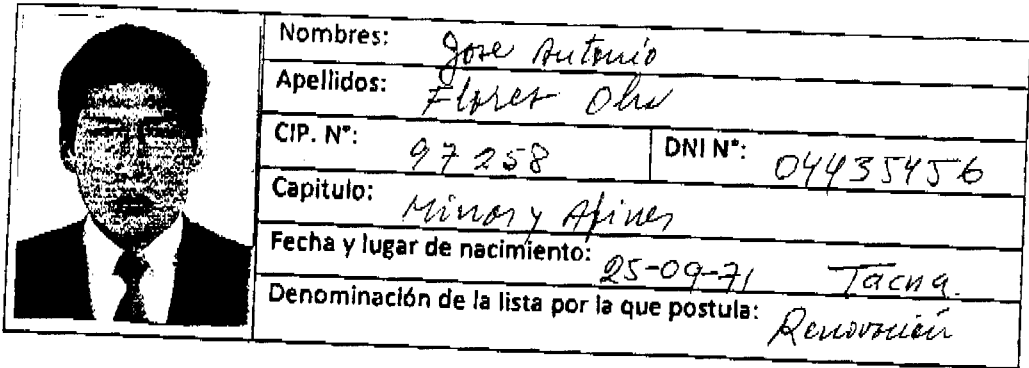 Nombres: Jose Antonio
Apellidos: Flores
CIP. N°: 97258 DNI N°: 04435456
Capitulo: Minas y Afines
Fecha y lugar de nacimiento: 25-09-71 Tacna.
Denominación de la lista por la que postula: Renovación